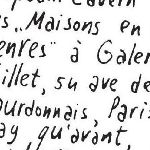 s „Maisons en
enres" à Galer
illet, 5u ave de
ourdonnais, Paris
ay qu'avant,